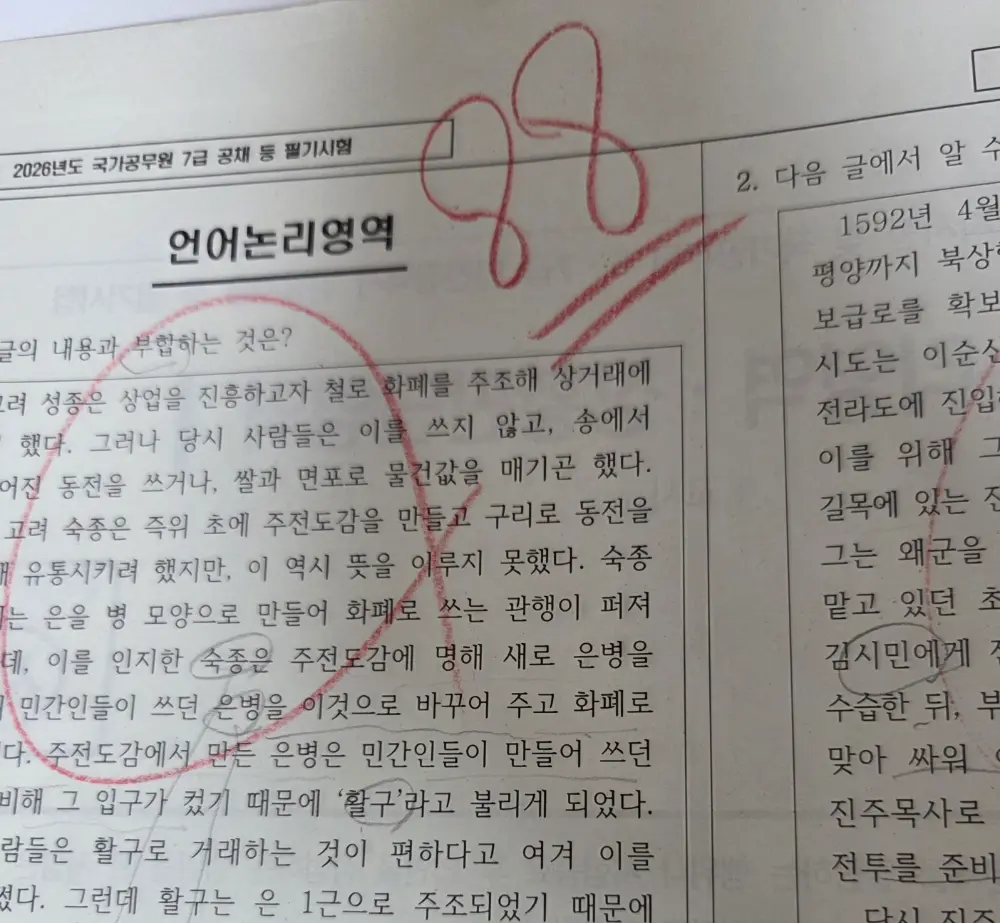 88
2026년도 국가공무원 7급 공채 등 필기시험
언어논리영역
글의 내용과 부합하는 것은?
고려 성종은 상업을 진흥하고자 철로 화폐를 주조해 상거래에
했다. 그러나 당시 사람들은 이를 쓰지 않고, 송에서
어진 동전을 쓰거나, 쌀과 면포로 물건값을 매기곤 했다.
고려 숙종은 즉위 초에 주전도감을 만들고 구리로 동전을
해 유통시키려 했지만, 이 역시 뜻을 이루지 못했다. 숙종
는 은을 병 모양으로 만들어 화폐로 쓰는 관행이 퍼져
데, 이를 인지한 숙종은 주전도감에 명해 새로 은병을
민간인들이 쓰던 은병을 이것으로 바꾸어 주고 화폐로
다. 주전도감에서 만든 은병은 민간인들이 만들어 쓰던
비해 그 입구가 컸기 때문에 ‘활구’라고 불리게 되었다.
람들은 활구로 거래하는 것이 편하다고 여겨 이를
썼다. 그런데 활구는 은 1근으로 주조되었기 때문에
2. 다음 글에서 알 수
1592년 4월
평양까지 북상
보급로를 확보
시도는 이순신
전라도에 진입
이를 위해 그
길목에 있는 진
그는 왜군을
맡고 있던 초
김시민에게 진
수습한 뒤, 부
맞아 싸워
진주목사로
전투를 준비
당시 진주